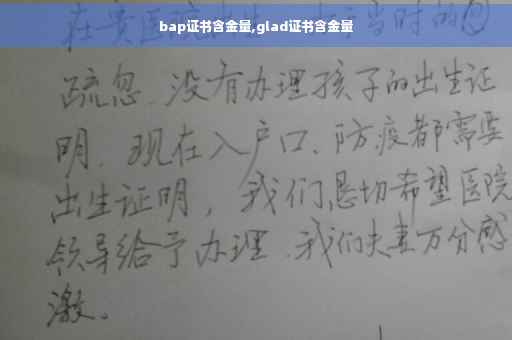 bap证书含金量,glad证书含金量
疏忽.没有办理孩子的出生证
明.现在入户口、防疫都需要
出生证明,我们恳切希望医院
领导给予办理.我们夫妻万分感
激。